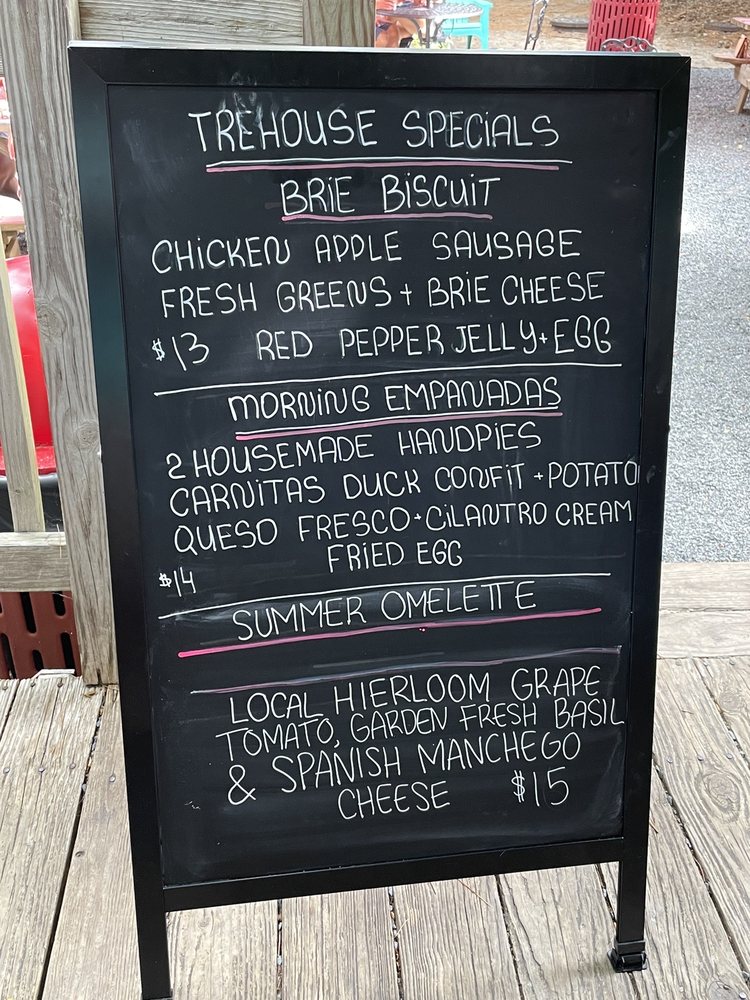 TREHOUSE SPECIALS
BRIE BISCUIT
CHICKEN APPLE SAUSAGE
FRESH GREENS + BRIE CHEESE
$13 RED PEPPER JELLY + EGG
MORNING EMPANADAS
2 HOUSEMADE HANDPIES
CARNITAS DUCK CONFIT + POTATO
QUESO FRESCO + CILANTRO CREAM
FRIED EGG
$14
SUMMER OMELETTE
LOCAL HIERLOOM GRAPE
TOMATO, GARDEN FRESH BASIL
& SPANISH MANCHEGO
CHEESE $15